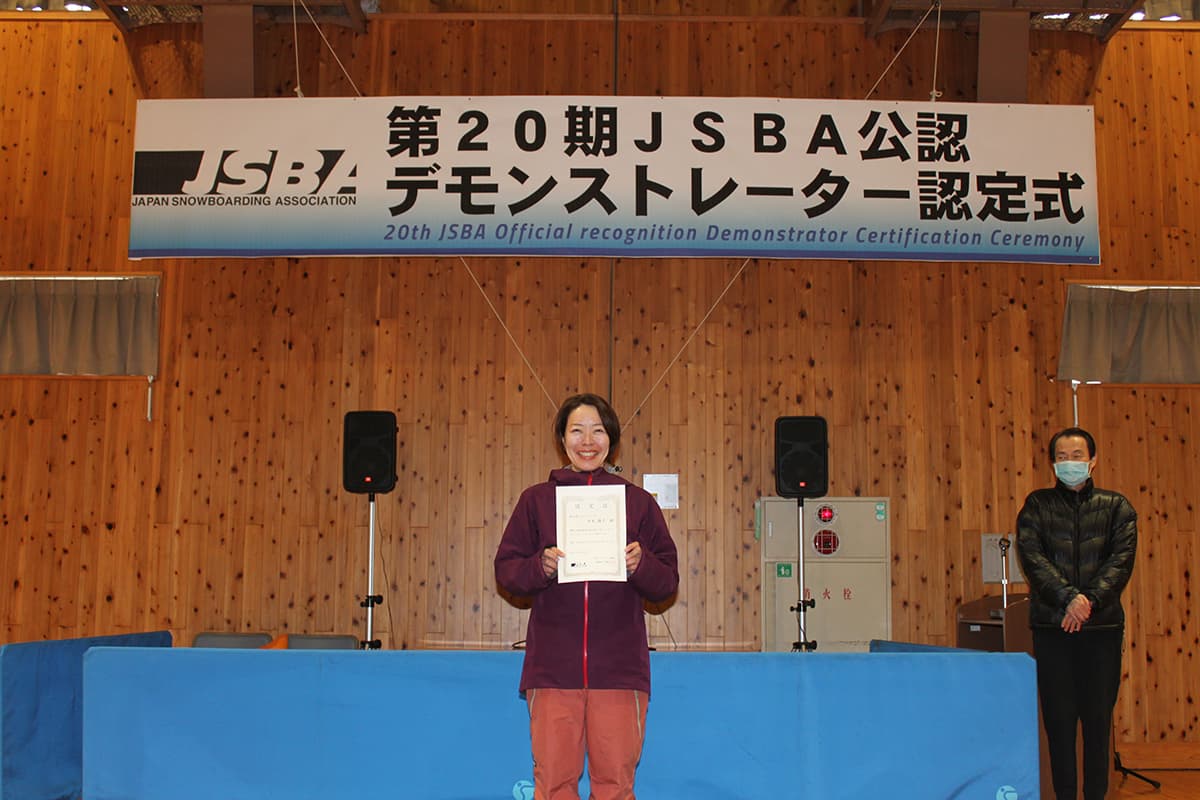 第20期JSBA公認
JSBA
デモンストレーター認定式
JAPAN SNOWBOARDING ASSOCIATION
20th JSBA Official recognition Demonstrator Certification Ceremony
消火栓